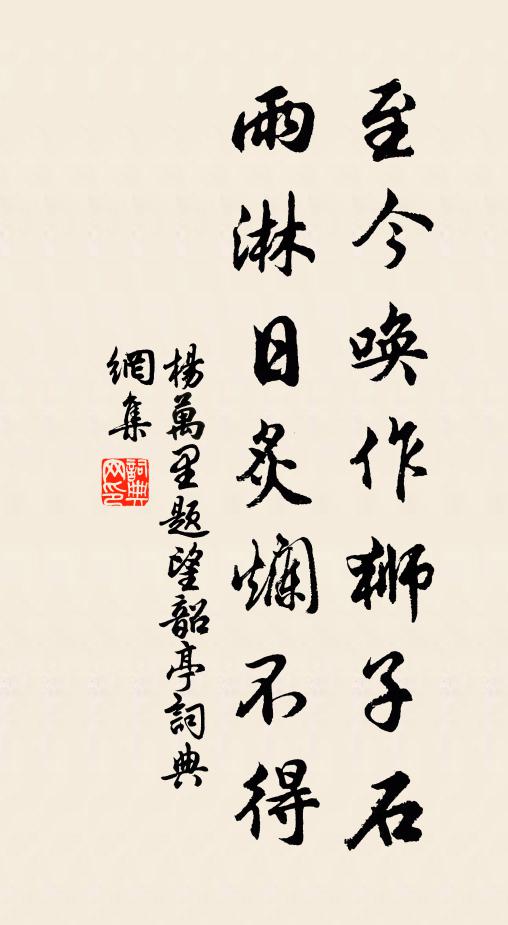 至今喚作獅子石
雨淋日炙爛不得
楊萬里題望韶亭詞典
網集
詞典
网印